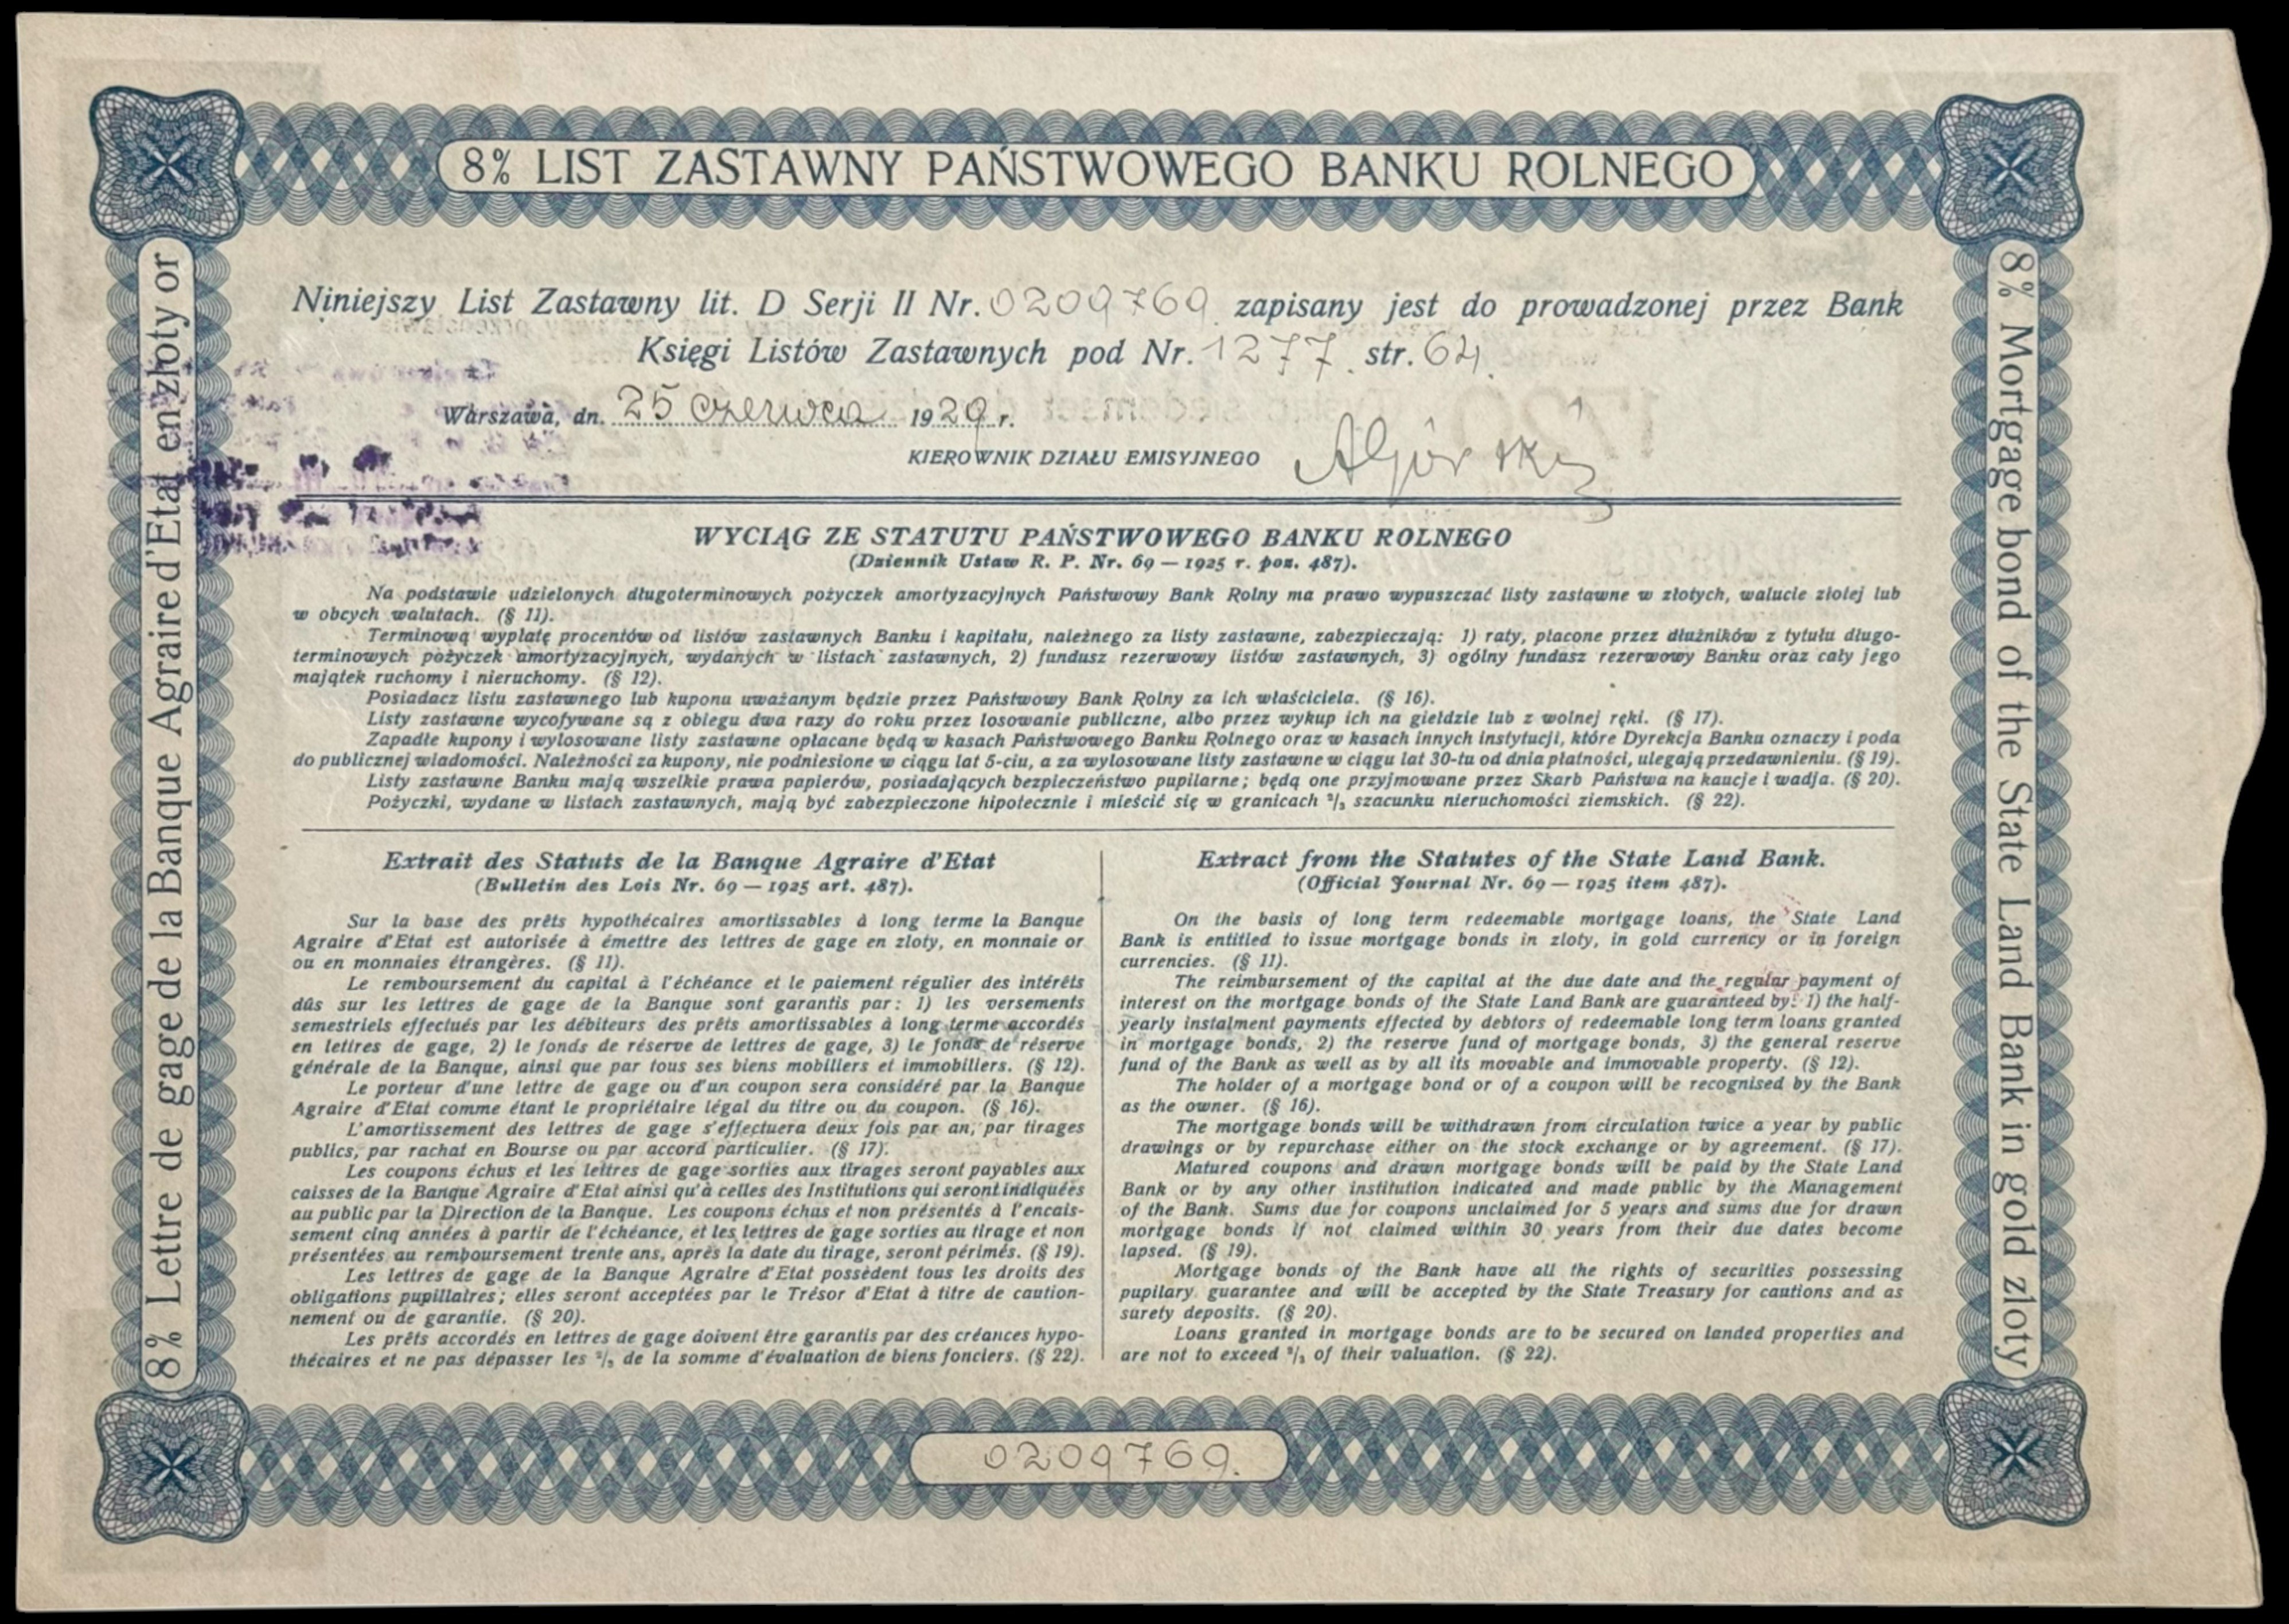 8% LIST ZASTAWNY PAŃSTWOWEGO BANKU ROLNEGO
8% Lettre de gage de la Banque Agraire d'Etat en złoty or
8% Mortgage bond of the State Land Bank in gold zloty
Niniejszy List Zastawny lit. D Serji II Nr. 0209769 zapisany jest do prowadzonej przez Bank
Księgi Listów Zastawnych pod Nr. 1277. str. 64.
Warszawa, dn. 25 czerwca 1929 r.
KIEROWNIK DZIAŁU EMISYJNEGO AGórski
WYCIĄG ZE STATUTU PAŃSTWOWEGO BANKU ROLNEGO
(Dziennik Ustaw R. P. Nr. 69 — 1925 r. poz. 487).
Na podstawie udzielonych długoterminowych pożyczek amortyzacyjnych Państwowy Bank Rolny ma prawo wypuszczać listy zastawne w złotych, walucie złotej lub
w obcych walutach. (§ 11).
Terminową wypłatę procentów od listów zastawnych Banku i kapitału, należnego za listy zastawne, zabezpieczają: 1) raty, płacone przez dłużników z tytułu długo-
terminowych pożyczek amortyzacyjnych, wydanych w listach zastawnych, 2) fundusz rezerwowy listów zastawnych, 3) ogólny fundusz rezerwowy Banku oraz cały jego
majątek ruchomy i nieruchomy. (§ 12).
Posiadacz listu zastawnego lub kuponu uważanym będzie przez Państwowy Bank Rolny za ich właściciela. (§ 16).
Listy zastawne wycofywane są z obiegu dwa razy do roku przez losowanie publiczne, albo przez wykup ich na giełdzie lub z wolnej ręki. (§ 17).
Zapadłe kupony i wylosowane listy zastawne opłacane będą w kasach Państwowego Banku Rolnego oraz w kasach innych instytucji, które Dyrekcja Banku oznaczy i poda
do publicznej wiadomości. Należności za kupony, nie podniesione w ciągu lat 5-ciu, a za wylosowane listy zastawne w ciągu lat 30-tu od dnia płatności, ulegają przedawnieniu. (§ 19).
Listy zastawne Banku mają wszelkie prawa papierów, posiadających bezpieczeństwo pupilarne; będą one przyjmowane przez Skarb Państwa na kaucje i wadja. (§ 20).
Pożyczki, wydane w listach zastawnych, mają być zabezpieczone hipotecznie i mieścić się w granicach ²/₃ szacunku nieruchomości ziemskich. (§ 22).
Extrait des Statuts de la Banque Agraire d'Etat
(Bulletin des Lois Nr. 69 — 1925 art. 487).
Sur la base des prêts hypothécaires amortissables à long terme la Banque
Agraire d'Etat est autorisée à émettre des lettres de gage en zloty, en monnaie or
ou en monnaies étrangères. (§ 11).
Le remboursement du capital à l'échéance et le paiement régulier des intérêts
dûs sur les lettres de gage de la Banque sont garantis par: 1) les versements
semestriels effectués par les débiteurs des prêts amortissables à long terme accordés
en lettres de gage, 2) le fonds de réserve de lettres de gage, 3) le fonds de réserve
générale de la Banque, ainsi que par tous ses biens mobiliers et immobiliers. (§ 12).
Le porteur d'une lettre de gage ou d'un coupon sera considéré par la Banque
Agraire d'Etat comme étant le propriétaire légal du titre ou du coupon. (§ 16).
L'amortissement des lettres de gage s'effectuera deux fois par an, par tirages
publics, par rachat en Bourse ou par accord particulier. (§ 17).
Les coupons échus et les lettres de gage sorties aux tirages seront payables aux
caisses de la Banque Agraire d'Etat ainsi qu'à celles des Institutions qui seront indiquées
au public par la Direction de la Banque. Les coupons échus et non présentés à l'encais-
sement cinq années à partir de l'échéance, et les lettres de gage sorties au tirage et non
présentées au remboursement trente ans, après la date du tirage, seront périmés. (§ 19).
Les lettres de gage de la Banque Agraire d'Etat possèdent tous les droits des
obligations pupillaires; elles seront acceptées par le Trésor d'Etat à titre de caution-
nement ou de garantie. (§ 20).
Les prêts accordés en lettres de gage doivent être garantis par des créances hypo-
thécaires et ne pas dépasser les ²/₃ de la somme d'évaluation de biens fonciers. (§ 22).
Extract from the Statutes of the State Land Bank.
(Official Journal Nr. 69 — 1925 item 487).
On the basis of long term redeemable mortgage loans, the State Land
Bank is entitled to issue mortgage bonds in zloty, in gold currency or in foreign
currencies. (§ 11).
The reimbursement of the capital at the due date and the regular payment of
interest on the mortgage bonds of the State Land Bank are guaranteed by: 1) the half-
yearly instalment payments effected by debtors of redeemable long term loans granted
in mortgage bonds, 2) the reserve fund of mortgage bonds, 3) the general reserve
fund of the Bank as well as by all its movable and immovable property. (§ 12).
The holder of a mortgage bond or of a coupon will be recognised by the Bank
as the owner. (§ 16).
The mortgage bonds will be withdrawn from circulation twice a year by public
drawings or by repurchase either on the stock exchange or by agreement. (§ 17).
Matured coupons and drawn mortgage bonds will be paid by the State Land
Bank or by any other institution indicated and made public by the Management
of the Bank. Sums due for coupons unclaimed for 5 years and sums due for drawn
mortgage bonds if not claimed within 30 years from their due dates become
lapsed. (§ 19).
Mortgage bonds of the Bank have all the rights of securities possessing
pupilary guarantee and will be accepted by the State Treasury for cautions and as
surety deposits. (§ 20).
Loans granted in mortgage bonds are to be secured on landed properties and
are not to exceed ²/₃ of their valuation. (§ 22).
0209769.